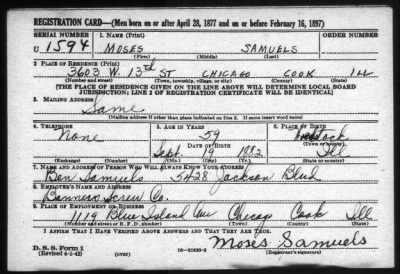 REGISTRATION CARD—(Men born on or after April 28, 1877 and on or before February 16, 1897)
SERIAL NUMBER 1. NAME (Print) ORDER NUMBER
U 1594 MOSES SAMUELS
(First) (Middle) (Last)
2. PLACE OF RESIDENCE (Print)
3603 W. 13th ST CHICAGO COOK ILL
(Number and street) (Town, township, village, or city) (County) (State)
[THE PLACE OF RESIDENCE GIVEN ON THE LINE ABOVE WILL DETERMINE LOCAL BOARD
JURISDICTION; LINE 2 OF REGISTRATION CERTIFICATE WILL BE IDENTICAL]
3. MAILING ADDRESS
Same
[Mailing address if other than place indicated on line 2. If same insert word same]
4. TELEPHONE 5. AGE IN YEARS 6. PLACE OF BIRTH
None 59
DATE OF BIRTH (Town or county)
Sept 19 1882
(Exchange) (Number) (Mo.) (Day) (Yr.) (State or country)
7. NAME AND ADDRESS OF PERSON WHO WILL ALWAYS KNOW YOUR ADDRESS
Ben Samuels 5428 Jackson Blvd
8. EMPLOYER'S NAME AND ADDRESS
Banner Screw Co.
9. PLACE OF EMPLOYMENT OR BUSINESS
1119 Blue Island Ave Chicago Cook Ill
(Number and street or R. F. D. number) (Town) (County) (State)
I AFFIRM THAT I HAVE VERIFIED ABOVE ANSWERS AND THAT THEY ARE TRUE.
Moses Samuels
D. S. S. Form 1
(Revised 4-1-42) (over) (Registrant's signature)